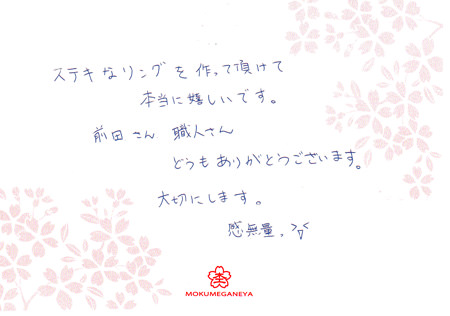 ステキなリングを作って頂けて
本当に嬉しいです。
前田さん 職人さん
どうもありがとうございます。
大切にします。
感無量。
MOKUMEGANEYA